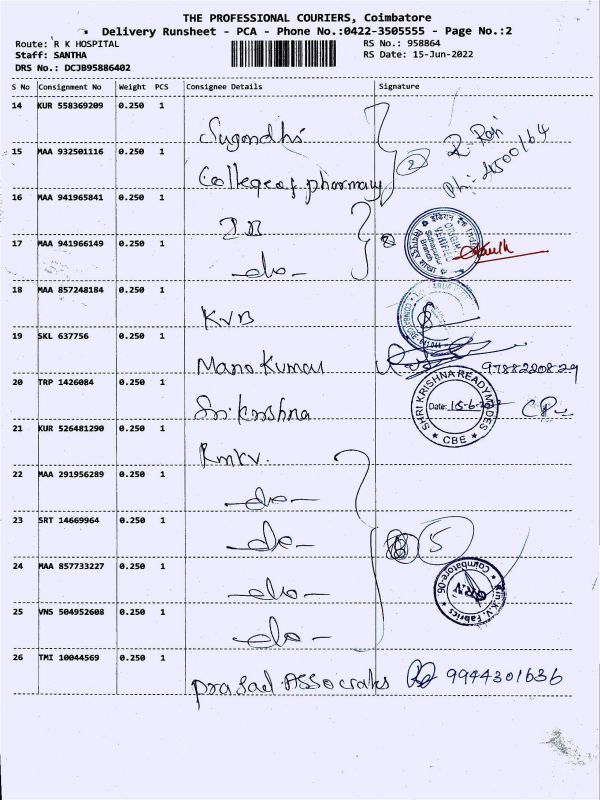 THE PROFESSIONAL COURIERS, Coimbatore
Delivery Runsheet - PCA - Phone No.:0422-3505555 - Page No.:2
Route: R K HOSPITAL
RS No.: 958864
Staff: SANTHA
RS Date: 15-Jun-2022
DRS No.: DCJB95886402
S No Consignment No Weight PCS Consignee Details Signature
14 KUR 558369209 0.250 1 Sugandhi
15 MAA 932501116 0.250 1 College of pharmacy 2 R. Raji
Ph: 4500164
16 MAA 941965841 0.250 1 I B
17 MAA 941966149 0.250 1 -do-
ORIGINAL
VERIFIED
Branch
18 MAA 857248184 0.250 1 KVB
19 SKL 637756 0.250 1 Mano Kumar 9788220829
20 TRP 1426084 0.250 1 Sri Krishna
SHRI KRISHNA READYMADES
Date: 15-6-
CBE
21 KUR 526481290 0.250 1 Rmkv.
22 MAA 291956289 0.250 1 -do-
23 SRT 14669964 0.250 1 -do- 5
24 MAA 857733227 0.250 1 -do-
Coimbatore-06
K.V. Fabrics
25 VNS 504952608 0.250 1 -do-
26 TMI 10044569 0.250 1 prasad Associates 9944301636